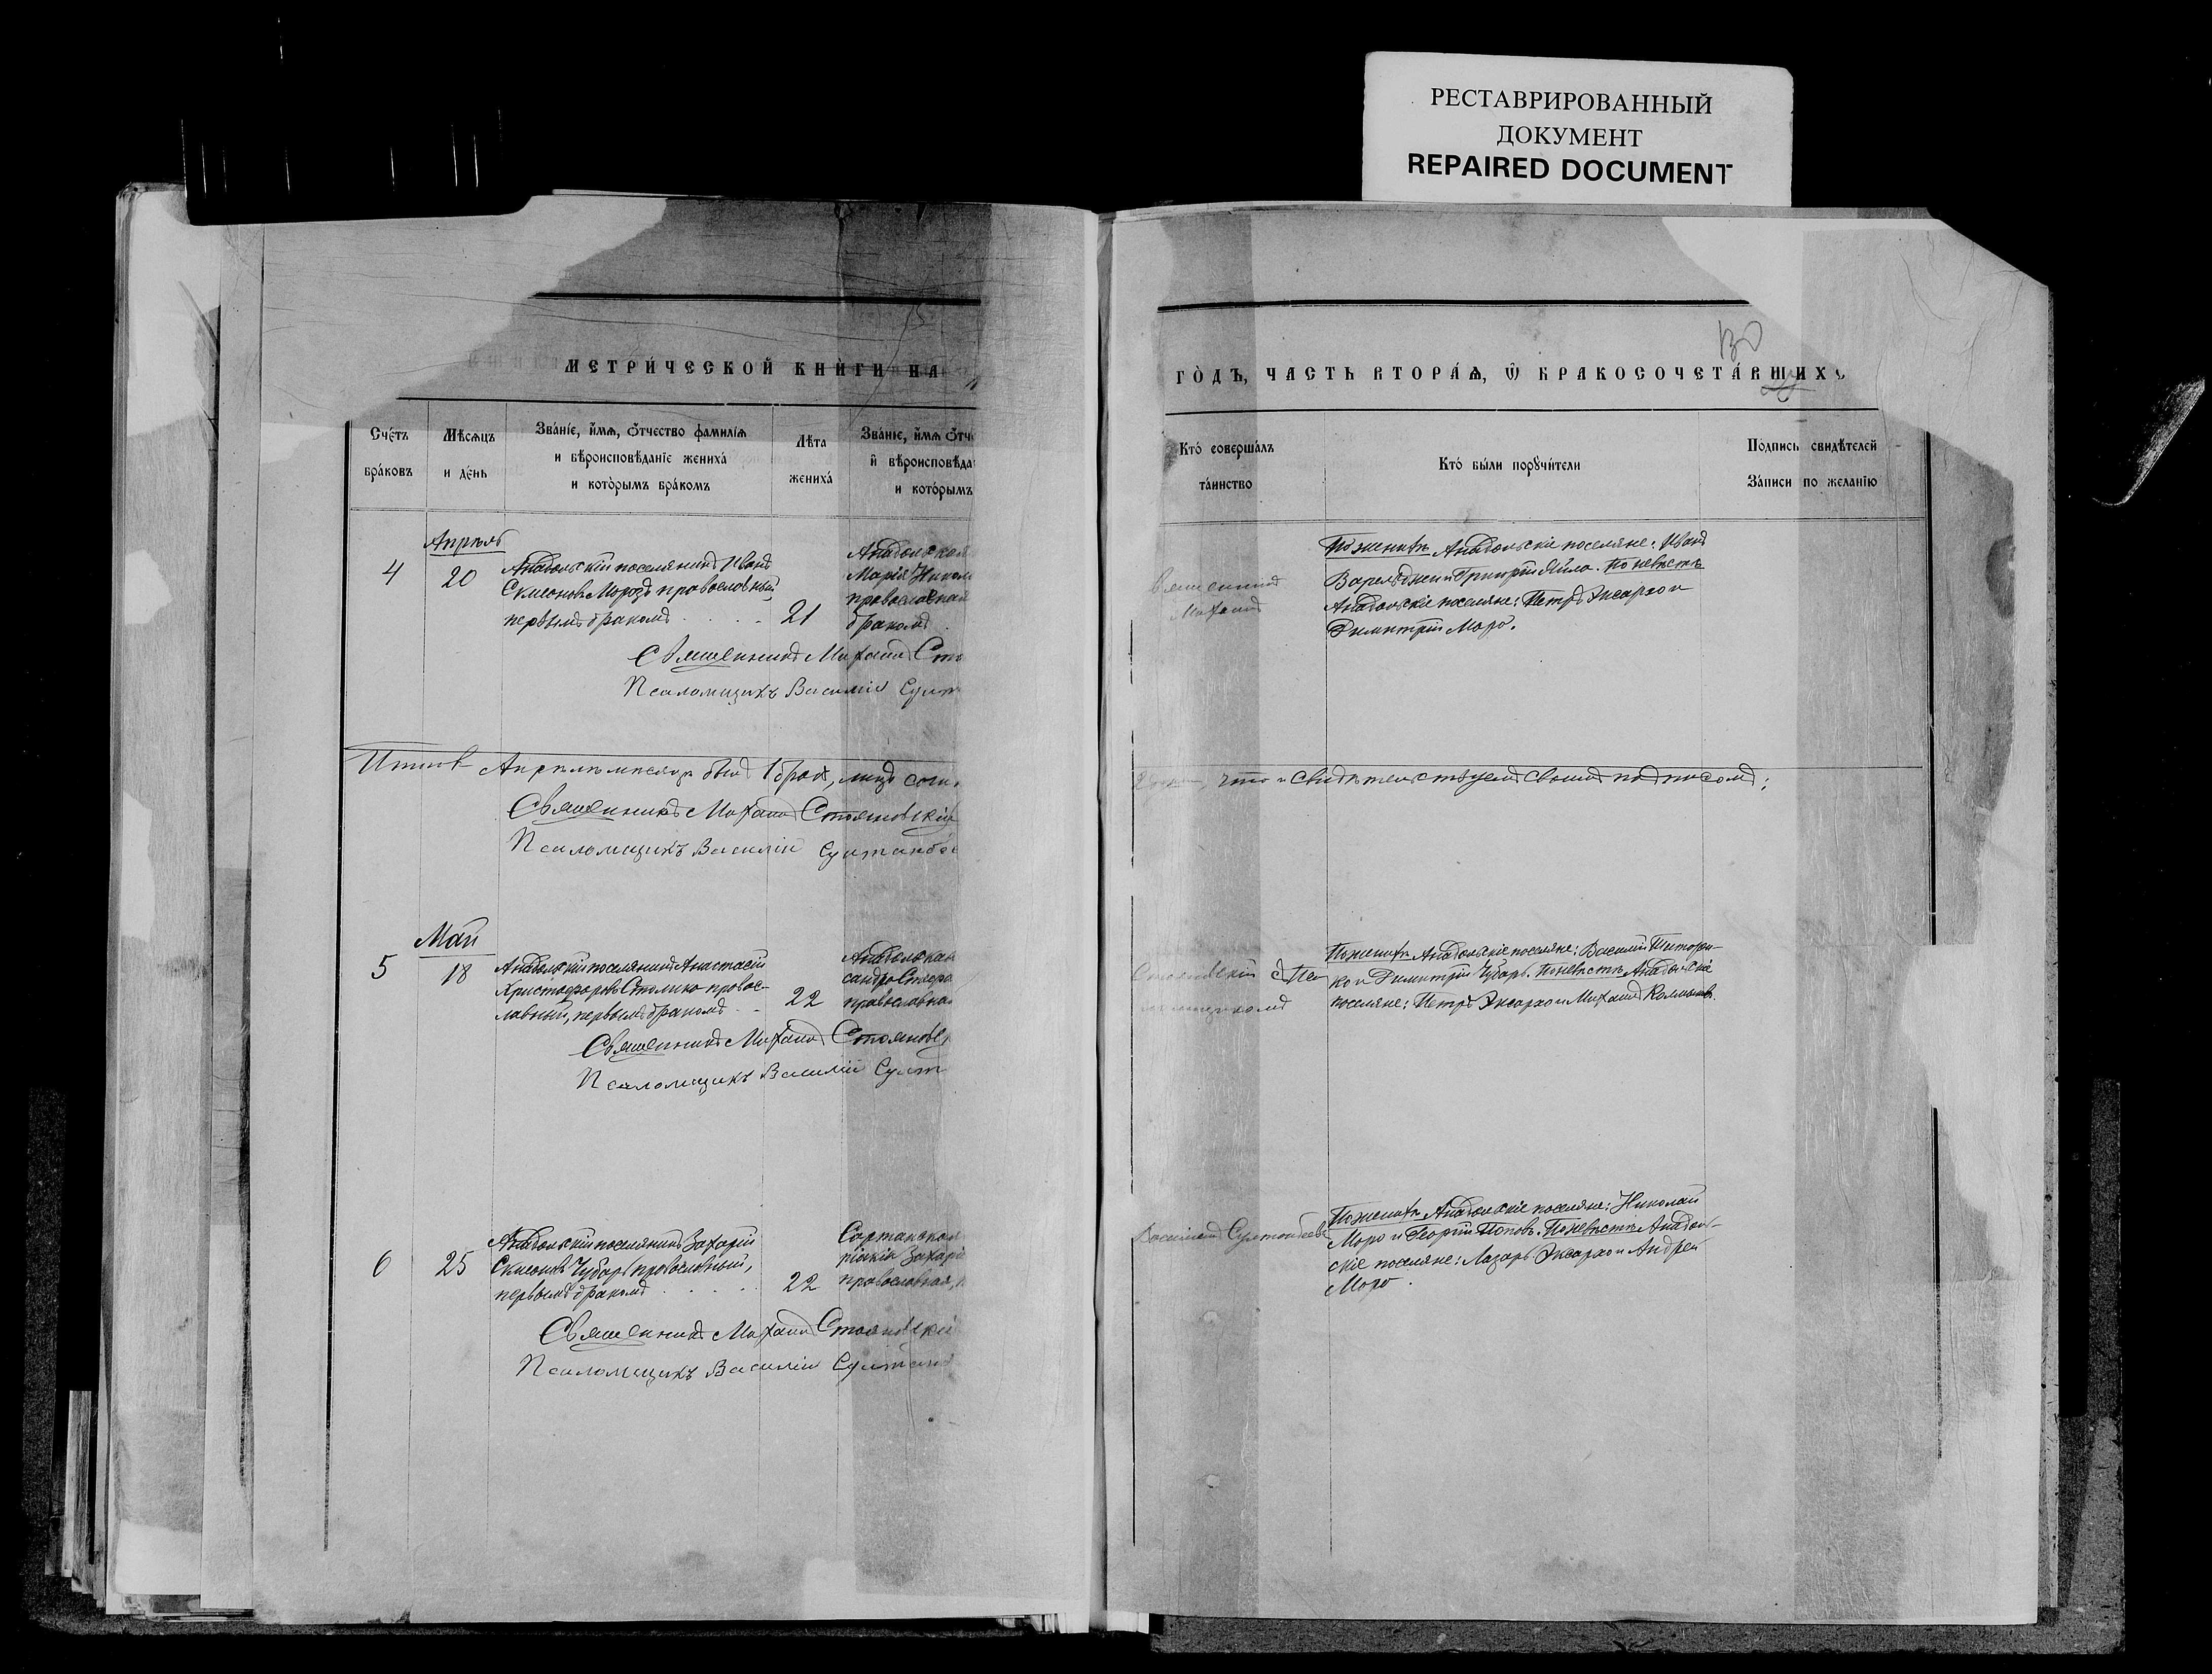 РЕСТАВРИРОВАННЫЙ
ДОКУМЕНТ
REPAIRED DOCUMENT
МЕТРИ́ЧЕСКОЙ КНЍГИ НА
Сче́тъ
бра́ковъ
Мѣ́сѧцъ
и де́нь
Зва́нїе, и҆́мѧ, ѻ҆́тчество фамилїѧ
и вѣроисповѣ́данїе жениха́
и кото́рымъ бра́комъ
Лѣ́та
жениха́
Зва́нїе, и҆́мѧ ѻ҆́тче
и҆ вѣроисповѣ́да
и кото́рымъ
Апрѣль
4
20
Анадольскій поселянинъ Иванъ
Симеоновъ Морозъ православный,
первымъ бракомъ
21
Анадольская
Марія Никол
православная
бракомъ
Священникъ Михаилъ Сто
Псаломщикъ Василій Султ
Итого въ Апрѣлѣ мѣсяцѣ былъ 1 бракъ, лицъ соч
Священникъ Михаилъ Стояновскій
Псаломщикъ Василій Султанбе
Май
5
18
Анадольскій поселянинъ Анастасій
Христофоровъ Столико правос-
лавный, первымъ бракомъ
22
Анадольская
сандра Стефа
православная
Священникъ Михаилъ Стояновс
Псаломщикъ Василій Султ
6
25
Анадольскій поселянинъ Захарій
Симеоновъ Чубарь православный,
первымъ бракомъ
22
Сартанская
Захарі
православная,
Священникъ Михаилъ Стояновскій
Псаломщикъ Василій Султан
130
ГО́ДЪ, ЧА́СТЬ ВТОРА́Ѧ, Ѡ҆ БРАКОСОЧЕТА́ВШИХС
Кто́ соверша́лъ
та́инство
Кто́ бы́ли порꙋчи́тели
По́дпись свидѣ́телей
За́писи по жела́нїю
Священникъ
Михаилъ
По женихѣ Анадольскіе поселяне: Иванъ
и Григорій Яйло. По невѣстѣ
Анадольскіе поселяне: Петръ Эксархо и
Димитрій Моро.
что и свидѣтельствуемъ своимъ подписомъ:
Стояновскій съ Пса
ломщикомъ
По женихѣ Анадольскіе поселяне: Василій
ко и Димитрій Чубарь. По невѣстѣ Анадольскіе
поселяне: Петръ Эксархо и Михаилъ
Василіемъ Султанбеевъ
По женихѣ Анадольскіе поселяне: Николай
Моро и Георгій Поповъ. По невѣстѣ Анадоль-
скіе поселяне: Лазарь Эксархо и Андрей
Моро.